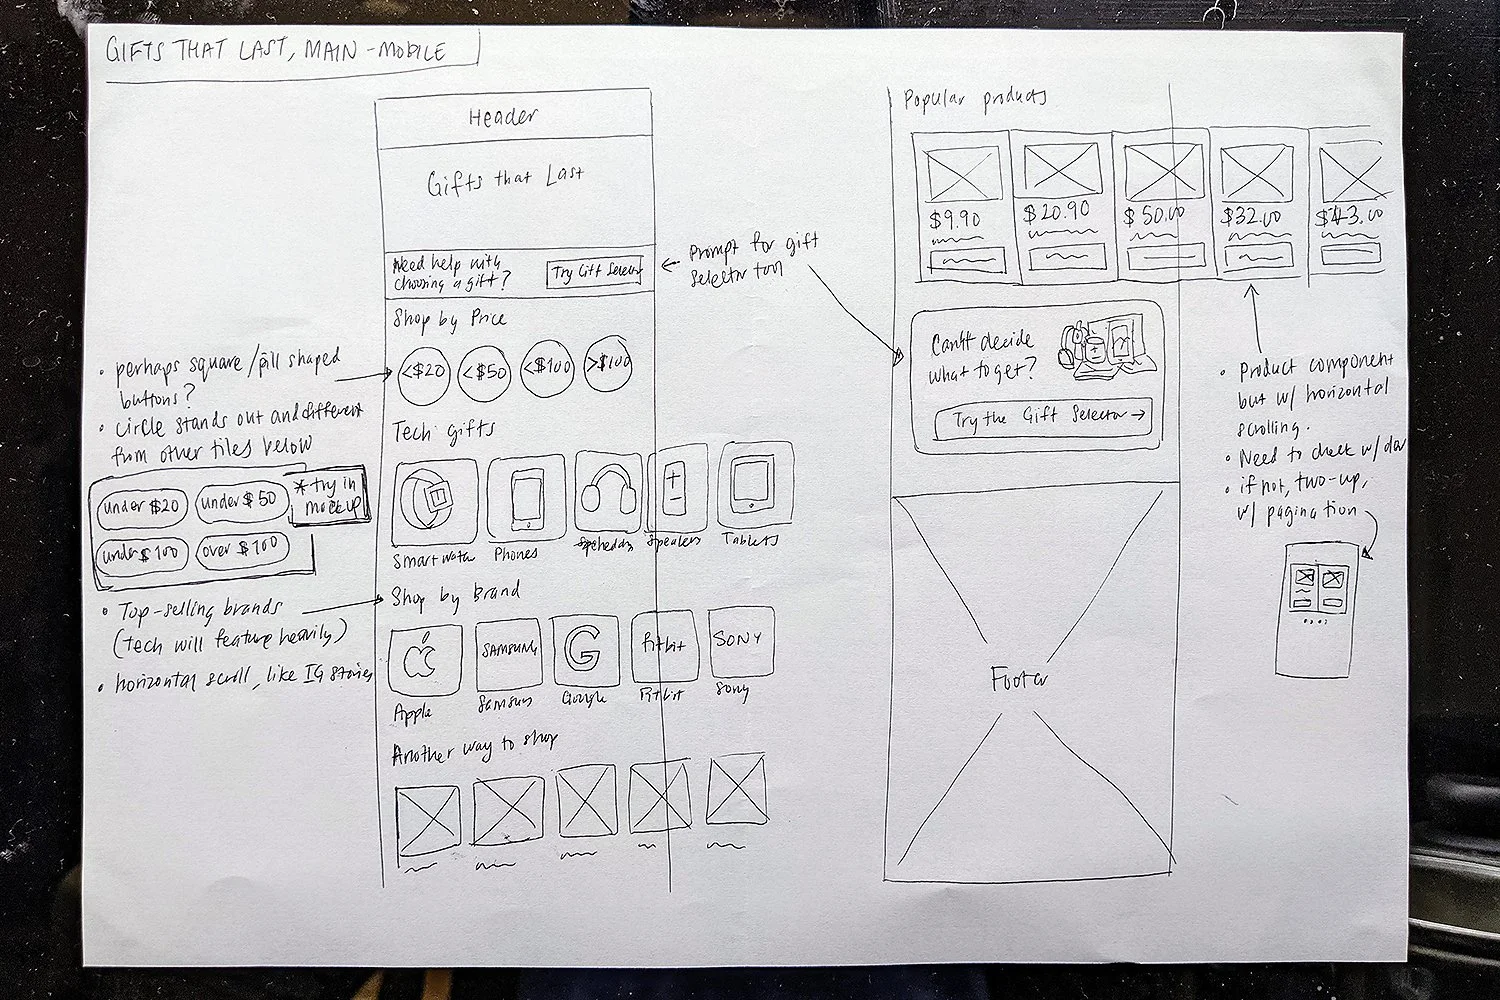 GIFTS THAT LAST, MAIN - MOBILE
Header
Gifts that Last
Need help with
choosing a gift?
Try Gift Selector
← Prompt for gift
selector tool
Shop by Price
<$20
<$50
<$100
>$100
• perhaps square/pill shaped
buttons?
• circle stands out and different
from other tiles below
under $20
under $50
under $100
over $100
* try in
mockup
Tech gifts
Smartwatch
Phones
Speakers
Tablets
• Top-selling brands
(Tech will feature heavily)
• horizontal scroll, like IG stories
Shop by Brand
SAMSUNG
G
Fitbit
SONY
Apple
Samsung
Google
Fitbit
Sony
Another way to shop
Popular products
$9.90
$20.90
$50.00
$32.00
$43.00
Can't decide
what to get?
Try the Gift Selector →
• Product component
but w/ horizontal
scrolling.
• Need to check w/ dev
• if not, two-up,
w/ pagination
Footer